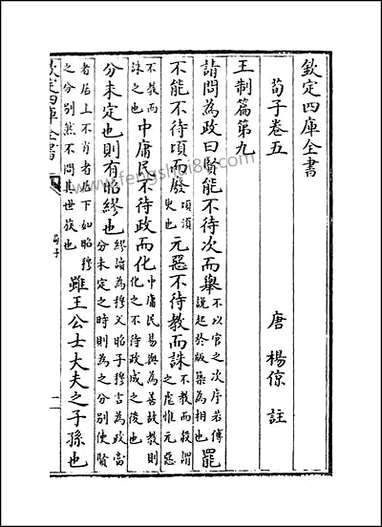 欽定四庫全書
荀子卷五 唐 楊倞 註
王制篇第九
請問為政曰賢能不待次而舉不以官之次序若傅說起於版築為相也罷
不能不待頃而廢頃須臾也元惡不待教而誅不教而殺謂之虐惟元惡
不教而誅之也中庸民不待政而化中庸民易與為善故教則化之不待政成之後也
分未定也則有昭繆也繆讀為穆父昭子穆言為政當分未定之時則為之分别使賢
者居上不肖者居下如昭穆之分别然不問其世族也雖王公士大夫之子孫也
欽定四庫全書 荀子
www.fengshui86.com